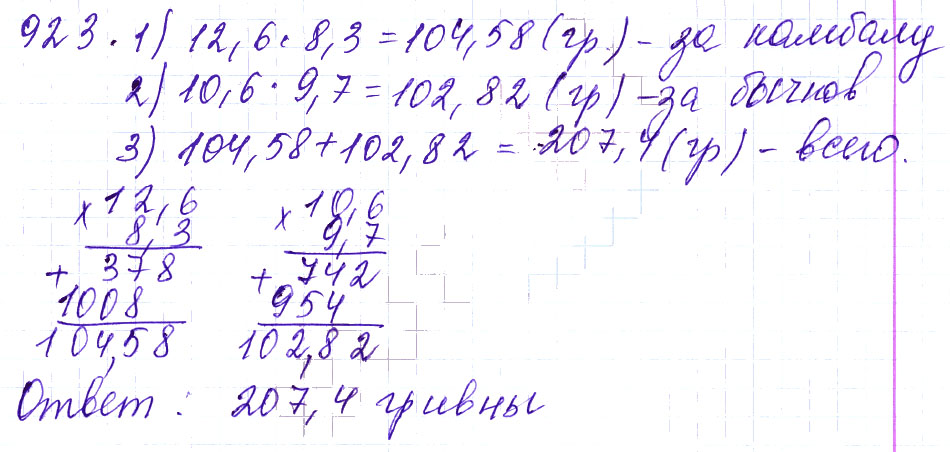 923. 1) 12,6 · 8,3 = 104,58 (гр.) - за камбалу
2) 10,6 · 9,7 = 102,82 (гр) - за бычков
3) 104,58 + 102,82 = 207,4 (гр) - всего.
× 12,6 × 10,6
8,3 9,7
+ 378 + 742
1008 954
104,58 102,82
Ответ: 207,4 гривны